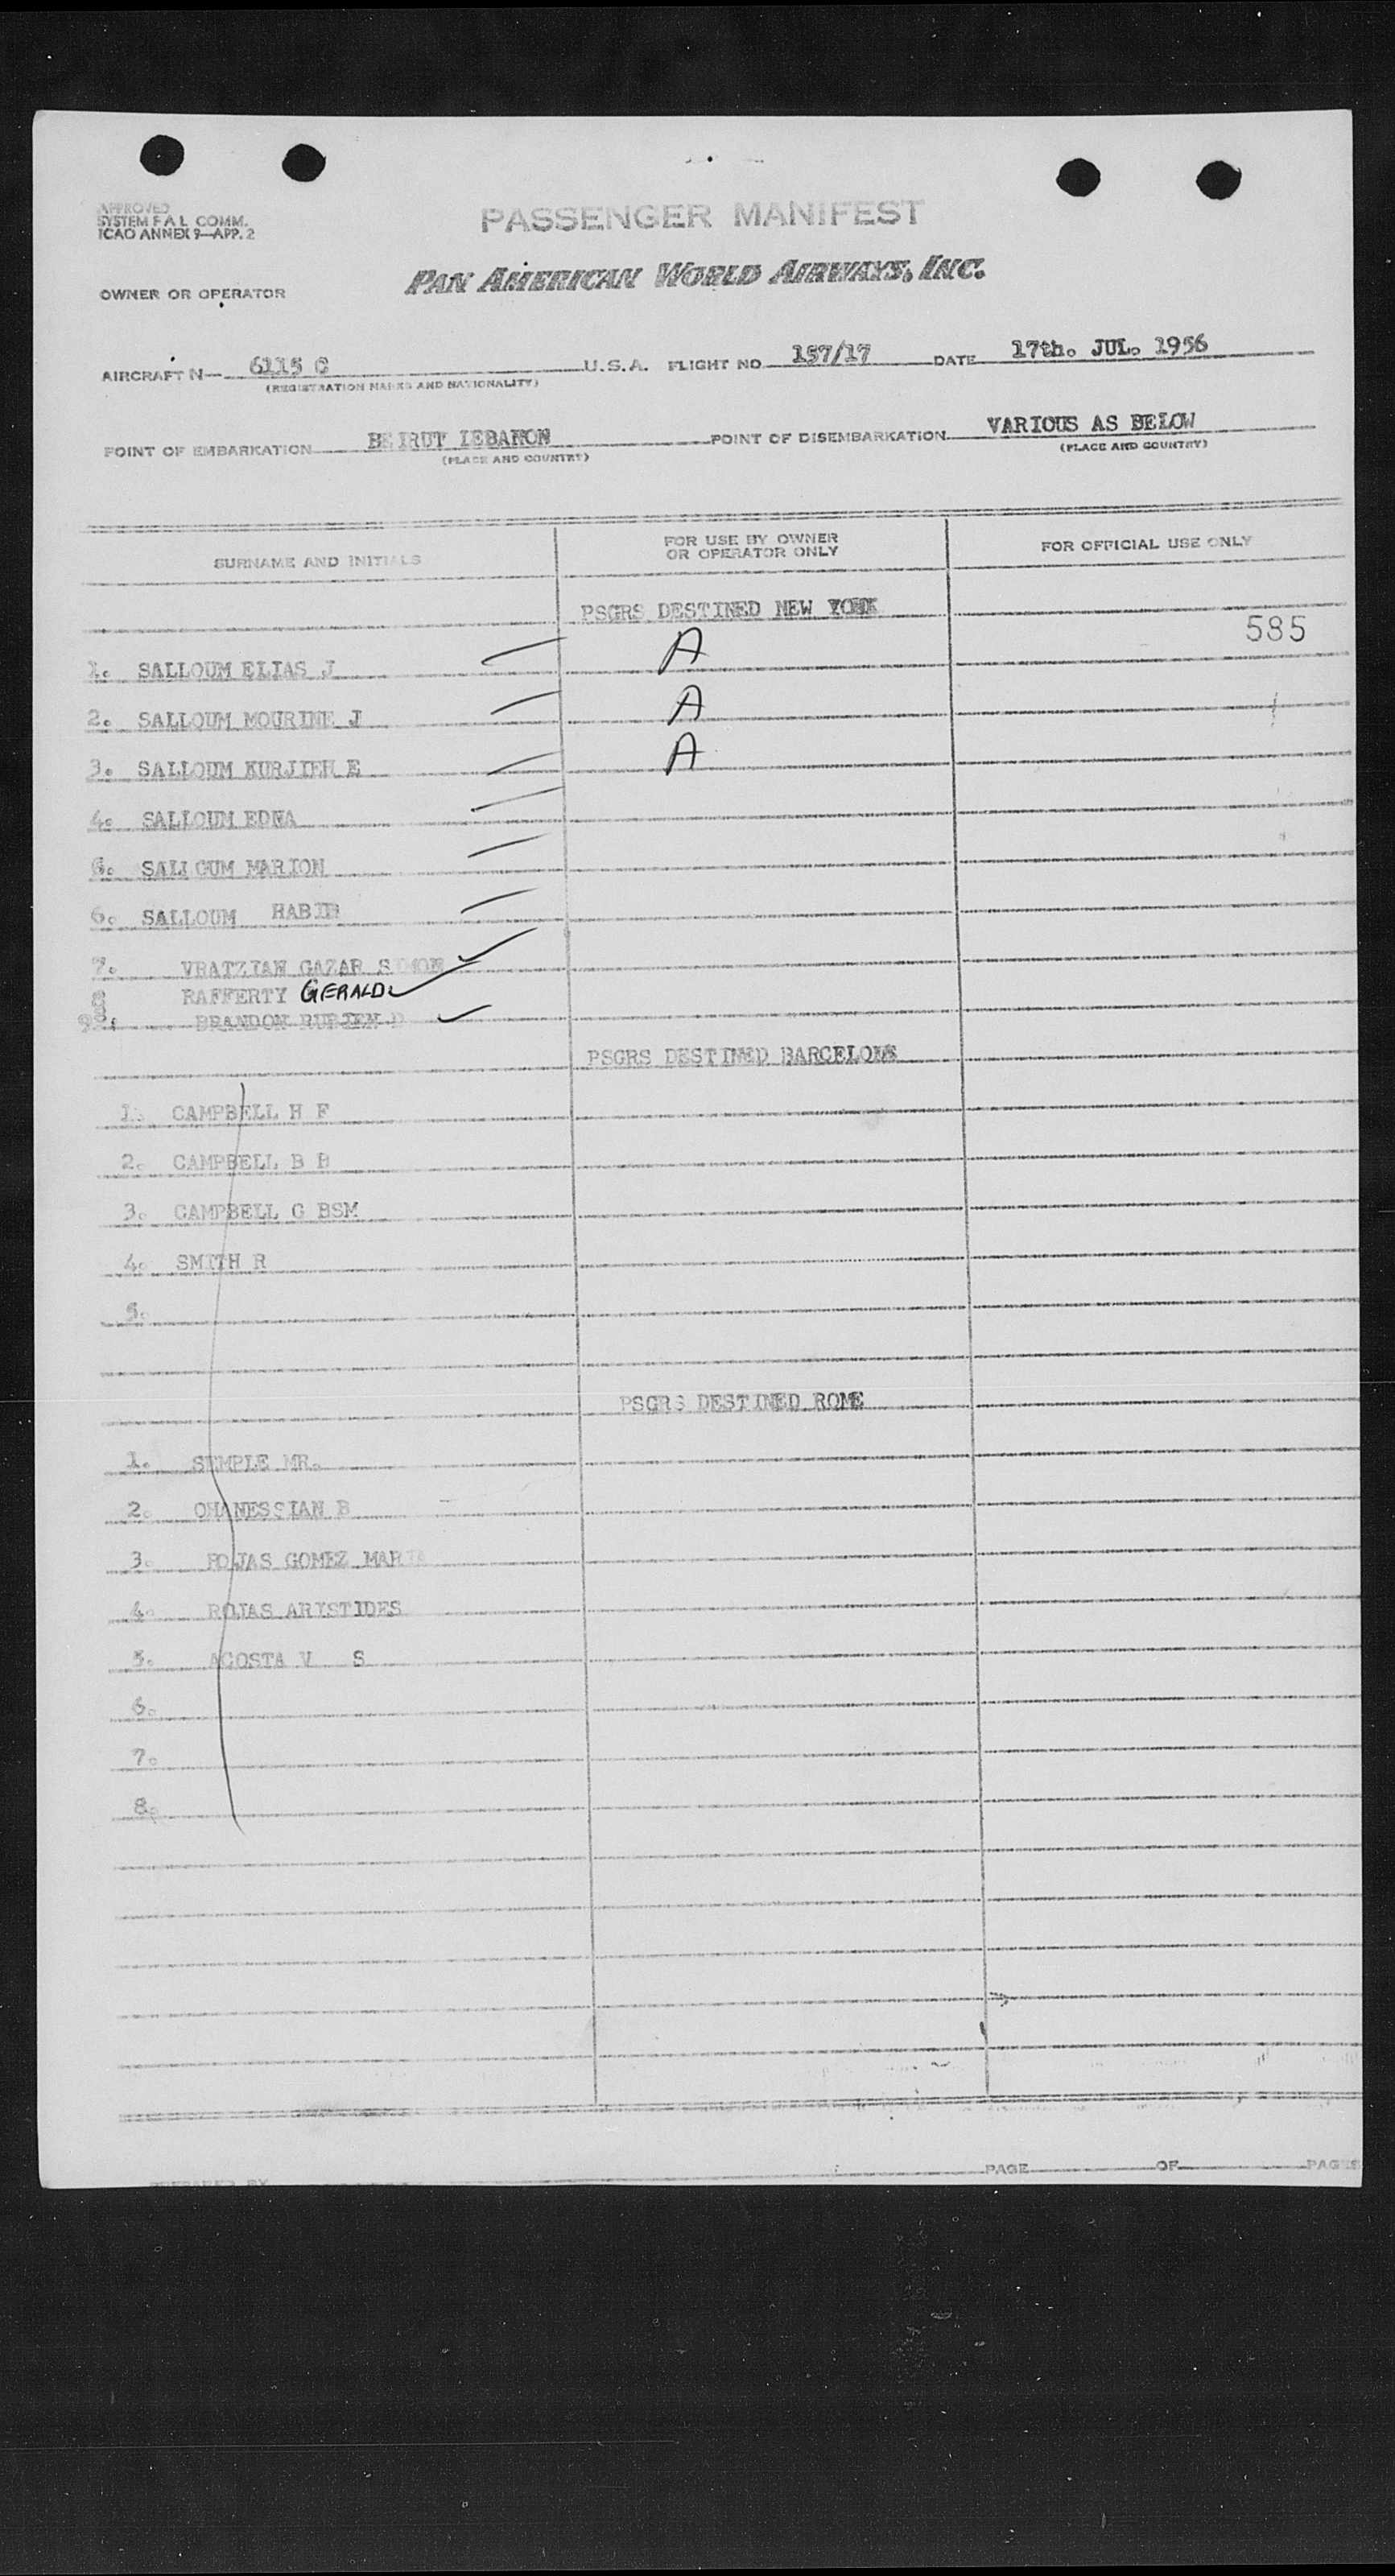 APPROVED
SYSTEM F A L COMM.
ICAO ANNEX 9—APP. 2
PASSENGER MANIFEST
PAN AMERICAN WORLD AIRWAYS, INC.
OWNER OR OPERATOR
AIRCRAFT N— 6115 C U.S.A. FLIGHT NO 157/17 DATE 17th. JUL. 1956
(REGISTRATION MARKS AND NATIONALITY)
POINT OF EMBARKATION BEIRUT LEBANON POINT OF DISEMBARKATION VARIOUS AS BELOW
(PLACE AND COUNTRY) (PLACE AND COUNTRY)
SURNAME AND INITIALS FOR USE BY OWNER OR OPERATOR ONLY FOR OFFICIAL USE ONLY
PSGRS DESTINED NEW YORK
585
1. SALLOUM ELIAS J A
2. SALLOUM MOURINE J A
3. SALLOUM KURJIEH E A
4. SALLOUM EDNA
SALLOUM MARION
6. SALLOUM HABIB
7. VRATZIAN GAZAR SIMON
RAFFERTY GERALD
BRANDON
PSGRS DESTINED BARCELONE
1. CAMPBELL H F
2. CAMPBELL B B
3. CAMPBELL G BSM
4. SMITH R
5.
PSGRS DESTINED ROME
1. SEMPLE MR.
2. OHANESSIAN B
3. ROJAS GOMEZ MARIA
4. ROJAS ARYSTIDES
5. ACOSTA V S
6.
7.
8.
PREPARED BY PAGE OF PAGES